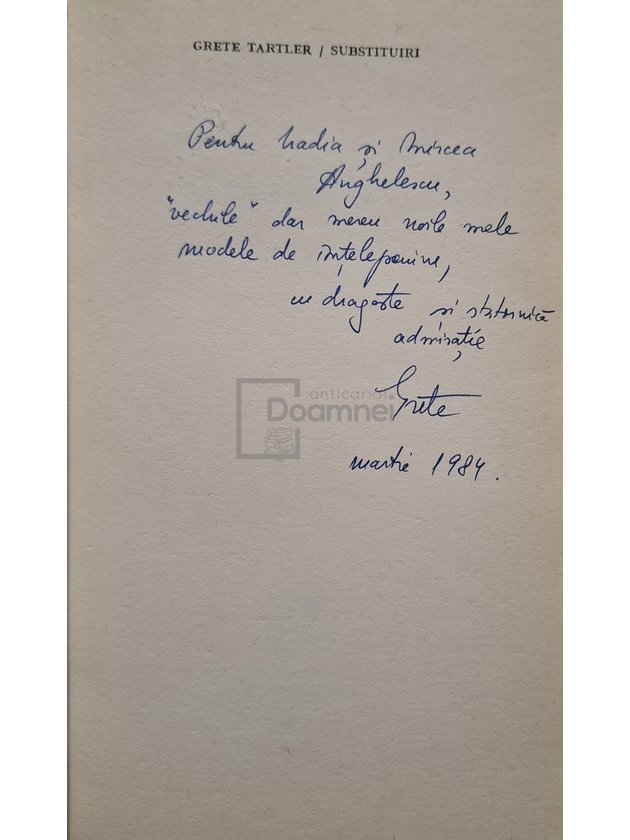 GRETE TARTLER / SUBSTITUIRI
Pentru Nadia și Mircea
Anghelescu,
"vechile" dar mereu noile mele
modele de înțelepciune,
cu dragoste și statornică
admirație
Grete
martie 1984.
anticariat
Doamnei